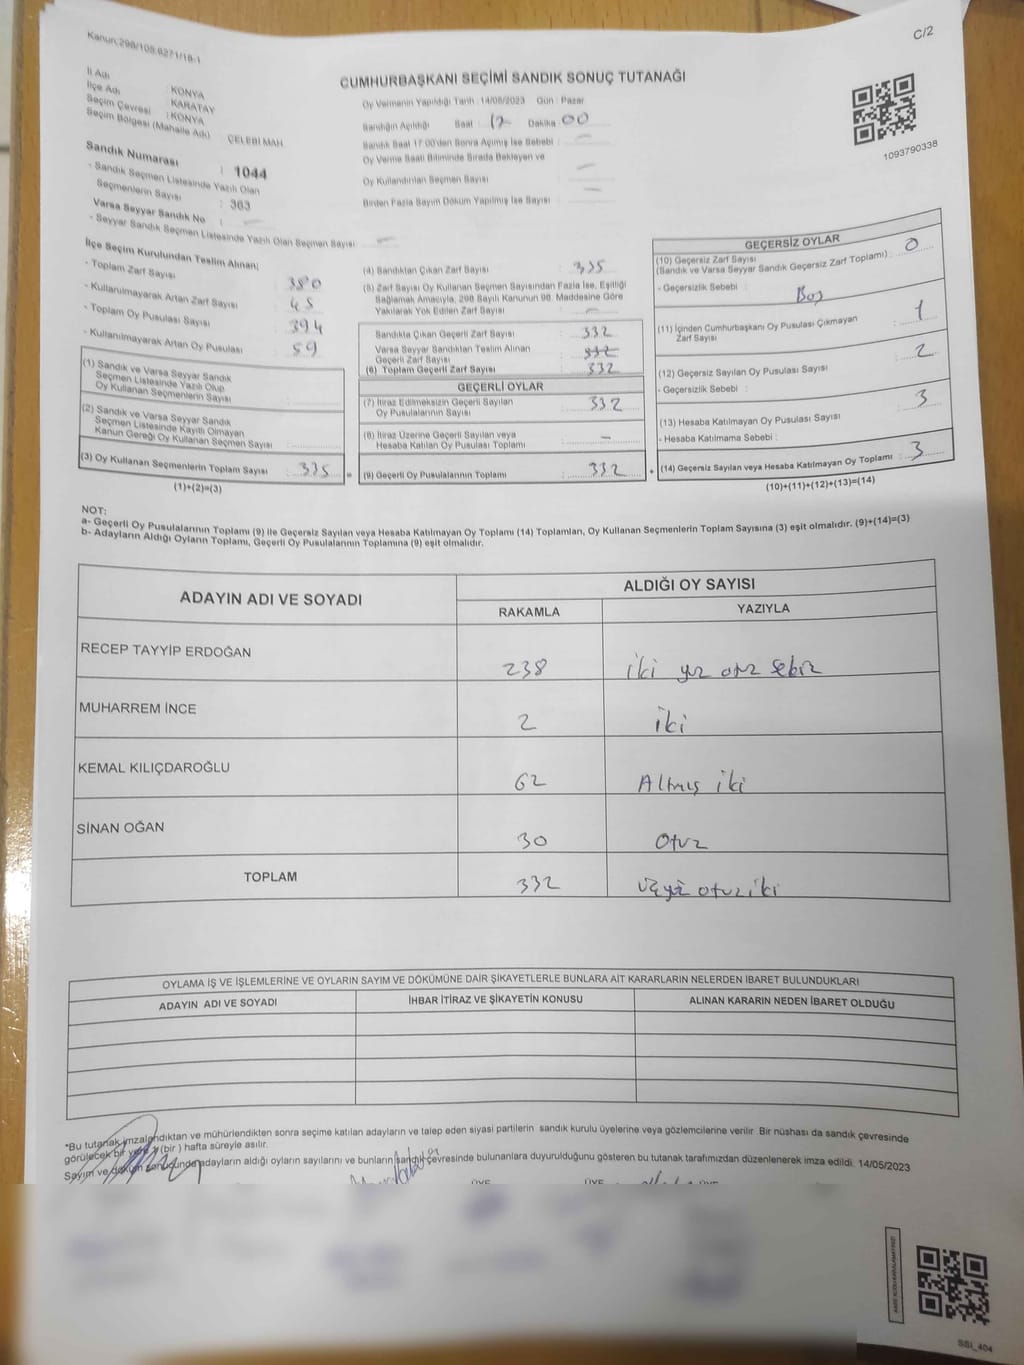 Kanun;298/108;6271/18-1
C/2
CUMHURBAŞKANI SEÇİMİ SANDIK SONUÇ TUTANAĞI
İl Adı : KONYA
İlçe Adı : KARATAY
Seçim Çevresi : KONYA
Seçim Bölgesi (Mahalle Adı) ÇELEBİ MAH
Sandık Numarası : 1044
- Sandık Seçmen Listesinde Yazılı Olan
Seçmenlerin Sayısı : 363
Varsa Seyyar Sandık No :
- Seyyar Sandık Seçmen Listesinde Yazılı Olan Seçmen Sayısı
Oy Vermenin Yapıldığı Tarih : 14/05/2023 Gün : Pazar
Sandığın Açıldığı Saat : 17 Dakika 00
Sandık Saat 17:00'den Sonra Açılmış İse Sebebi :
Oy Verme Saati Bitiminde Sırada Bekleyen ve
Oy Kullandırılan Seçmen Sayısı
Birden Fazla Sayım Döküm Yapılmış İse Sayısı :
1093790338
İlçe Seçim Kurulundan Teslim Alınan;
- Toplam Zarf Sayısı : 380
- Kullanılmayarak Artan Zarf Sayısı : 45
- Toplam Oy Pusulası Sayısı : 394
- Kullanılmayarak Artan Oy Pusulası : 59
(1) Sandık ve Varsa Seyyar Sandık
Seçmen Listesinde Yazılı Olup
Oy Kullanan Seçmenlerin Sayısı :
(2) Sandık ve Varsa Seyyar Sandık
Seçmen Listesinde Kayıtlı Olmayan
Kanun Gereği Oy Kullanan Seçmen Sayısı :
(3) Oy Kullanan Seçmenlerin Toplam Sayısı : 335 =
(1)+(2)=(3)
(4) Sandıktan Çıkan Zarf Sayısı : 335
(5) Zarf Sayısı Oy Kullanan Seçmen Sayısından Fazla İse, Eşitliği
Sağlamak Amacıyla, 298 Sayılı Kanunun 98. Maddesine Göre
Yakılarak Yok Edilen Zarf Sayısı : –
Sandıkta Çıkan Geçerli Zarf Sayısı : 332
Varsa Seyyar Sandıktan Teslim Alınan
Geçerli Zarf Sayısı : 332
(6) Toplam Geçerli Zarf Sayısı : 332
GEÇERLİ OYLAR
(7) İtiraz Edilmeksizin Geçerli Sayılan
Oy Pusulalarının Sayısı : 332
(8) İtiraz Üzerine Geçerli Sayılan veya
Hesaba Katılan Oy Pusulası Toplamı : –
(9) Geçerli Oy Pusulalarının Toplamı : 332 +
GEÇERSİZ OYLAR
(10) Geçersiz Zarf Sayısı
(Sandık ve Varsa Seyyar Sandık Geçersiz Zarf Toplamı) : 0
- Geçersizlik Sebebi : Boş
(11) İçinden Cumhurbaşkanı Oy Pusulası Çıkmayan
Zarf Sayısı : 1
(12) Geçersiz Sayılan Oy Pusulası Sayısı : 2
- Geçersizlik Sebebi :
(13) Hesaba Katılmayan Oy Pusulası Sayısı : 3
- Hesaba Katılmama Sebebi :
(14) Geçersiz Sayılan veya Hesaba Katılmayan Oy Toplamı : 3
(10)+(11)+(12)+(13)=(14)
NOT:
a- Geçerli Oy Pusulalarının Toplamı (9) ile Geçersiz Sayılan veya Hesaba Katılmayan Oy Toplamı (14) Toplamları, Oy Kullanan Seçmenlerin Toplam Sayısına (3) eşit olmalıdır. (9)+(14)=(3)
b- Adayların Aldığı Oyların Toplamı, Geçerli Oy Pusulalarının Toplamına (9) eşit olmalıdır.
ADAYIN ADI VE SOYADI
ALDIĞI OY SAYISI
RAKAMLA YAZIYLA
RECEP TAYYİP ERDOĞAN 238 iki yüz otuz sekiz
MUHARREM İNCE 2 iki
KEMAL KILIÇDAROĞLU 62 Altmış iki
SİNAN OĞAN 30 Otuz
TOPLAM 332 Üçyüz otuziki
OYLAMA İŞ VE İŞLEMLERİNE VE OYLARIN SAYIM VE DÖKÜMÜNE DAİR ŞİKAYETLERLE BUNLARA AİT KARARLARIN NELERDEN İBARET BULUNDUKLARI
ADAYIN ADI VE SOYADI İHBAR İTİRAZ VE ŞİKAYETİN KONUSU ALINAN KARARIN NEDEN İBARET OLDUĞU
*Bu tutanak imzalandıktan ve mühürlendikten sonra seçime katılan adayların ve talep eden siyasi partilerin sandık kurulu üyelerine veya gözlemcilerine verilir. Bir nüshası da sandık çevresinde
görülecek bir yere 1 (bir ) hafta süreyle asılır.
Sayım ve döküm sonucunda adayların aldığı oyların sayılarını ve bunların sandık çevresinde bulunanlara duyurulduğunu gösteren bu tutanak tarafımızdan düzenlenerek imza edildi. 14/05/2023
ÜYE ÜYE ÜYE
SSI_404